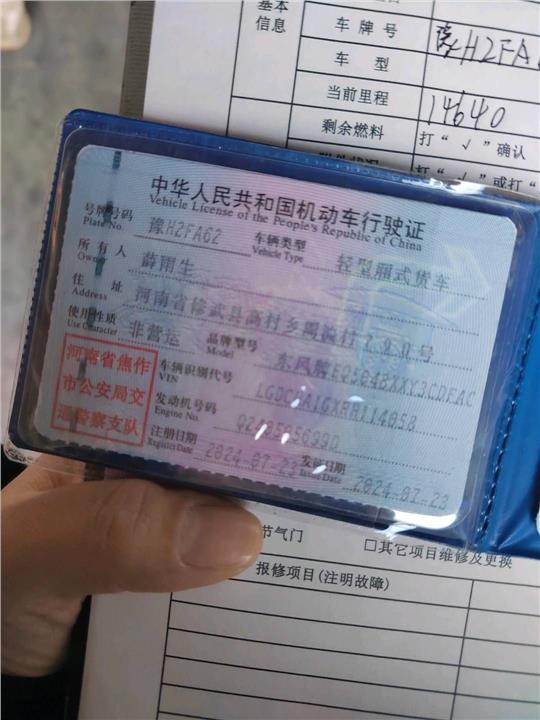 基本信息
车牌号
豫H2FA
车型
当前里程
14640
剩余燃料
打“√”确认
打“√”或打“
中华人民共和国机动车行驶证
Vehicle License of the People's Republic of China
号牌号码 豫H2FA62 车辆类型 轻型厢式货车
Plate No. Vehicle Type
所有人 薛雨生
Owner
住址 河南省修武县高村乡周流村790号
Address
使用性质 非营运 品牌型号 东风牌EQ5048XXY3CDFAC
Use Character Model
河南省焦作
市公安局交
通警察支队
车辆识别代号 LGDCAA1GXRH114058
VIN
发动机号码
Engine No.
注册日期 2024-07-23 发证日期 2024-07-23
Register Date Issue Date
节气门
□其它项目维修及更换
报修项目(注明故障)